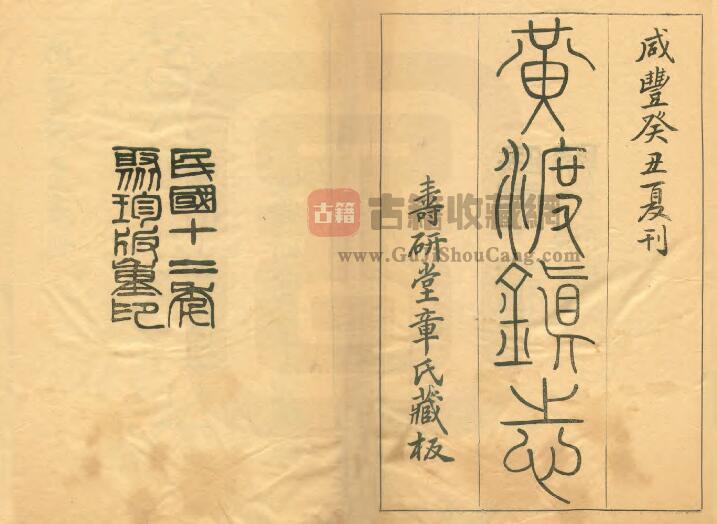 咸豐癸丑夏刊
黃渡鎮志
壽研堂章氏藏板
民國十二年
聚珍版重印
古籍
古籍收藏網
www.GuJiShouCang.com